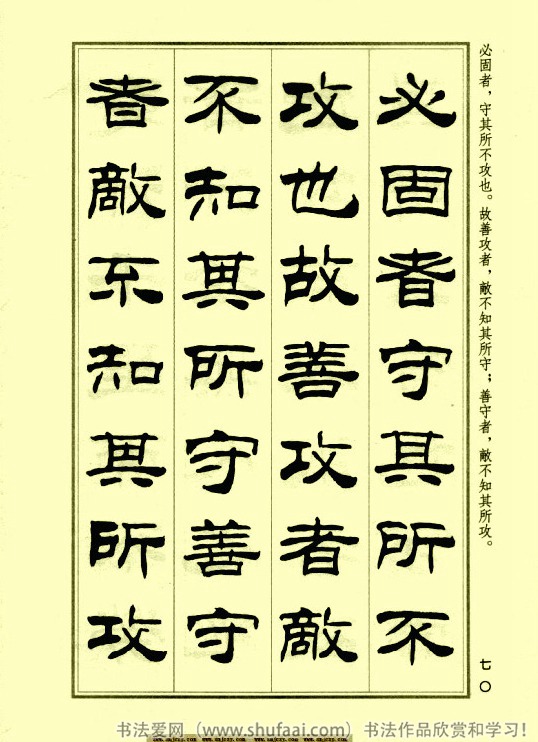 必固者，守其所不攻也。故善攻者，敵不知其所守；善守者，敵不知其所攻。
必固者守其所不
攻也故善攻者敵
不知其所守善守
者敵不知其所攻
七〇
书法爱网（www.shufaai.com）书法作品欣赏和学习！